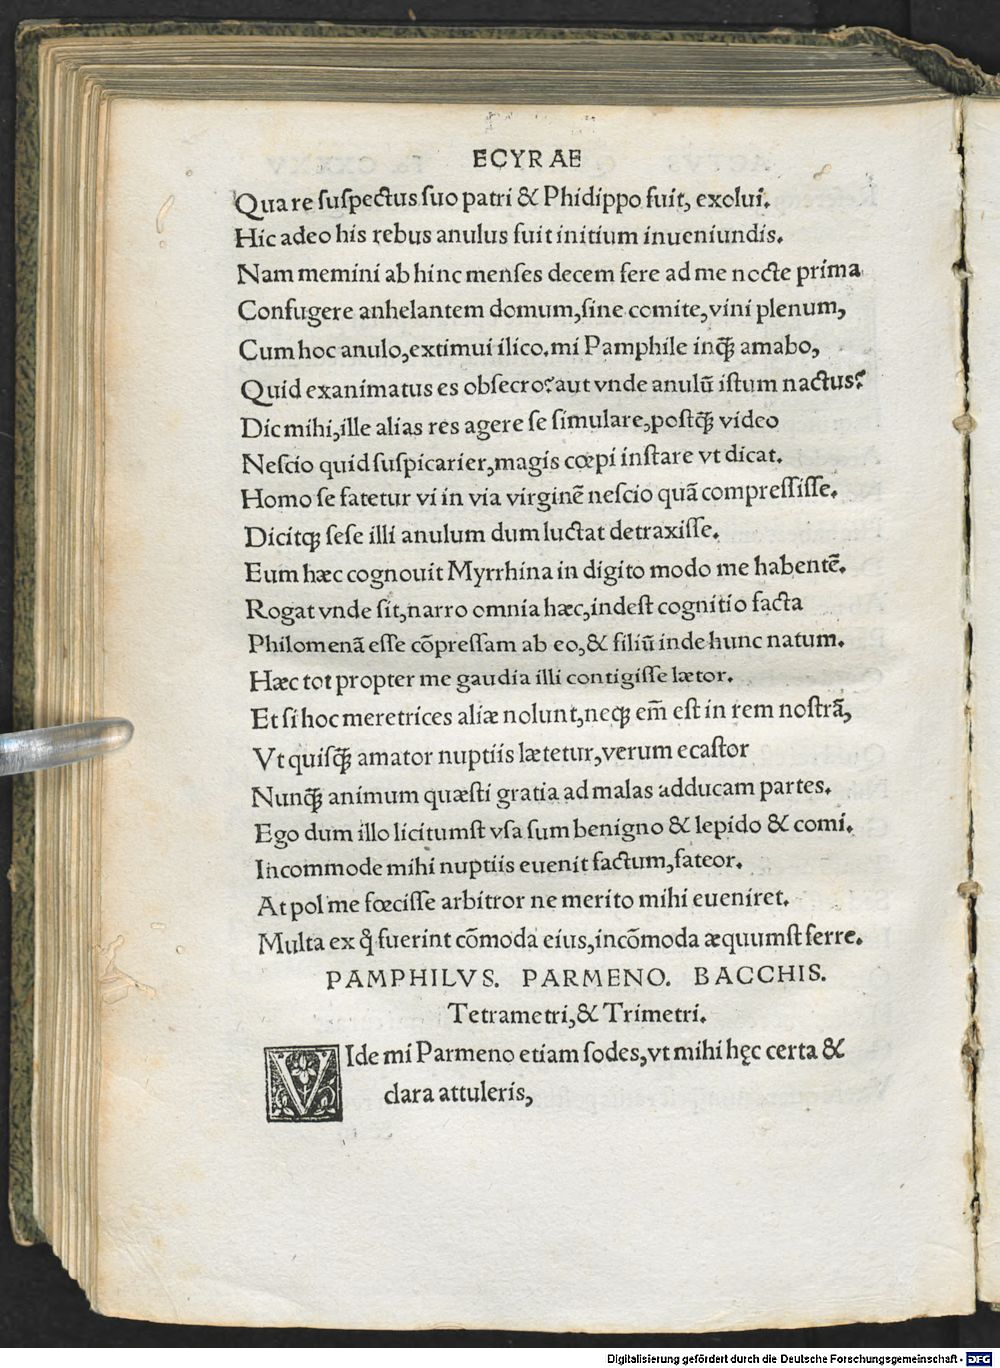 ECYRAE
Qua re ſuſpectus ſuo patri & Phidippo fuit, exolui.
Hic adeo his rebus anulus fuit initium inueniundis.
Nam memini ab hinc menſes decem fere ad me nocte prima
Confugere anhelantem domum, ſine comite, vini plenum,
Cum hoc anulo, extimui ilico. mi Pamphile inqꝫ amabo,
Quid exanimatus es obſecro? aut vnde anulū iſtum nactus?
Dic mihi, ille alias res agere ſe ſimulare, poſtqꝫ video
Neſcio quid ſuſpicarier, magis cœpi inſtare vt dicat.
Homo ſe fatetur vi in via virginē neſcio quā compreſſiſſe.
Dicitqꝫ ſeſe illi anulum dum luctat detraxiſſe.
Eum hæc cognouit Myrrhina in digito modo me habentē.
Rogat vnde ſit, narro omnia hæc, indeſt cognitio facta
Philomenā eſſe cōpreſſam ab eo, & filiū inde hunc natum.
Hæc tot propter me gaudia illi contigiſſe lætor.
Et ſi hoc meretrices aliæ nolunt, neqꝫ em̄ eſt in rem noſtrā,
Vt quiſqꝫ amator nuptiis lætetur, verum ecaſtor
Nunqꝫ animum quæſti gratia ad malas adducam partes.
Ego dum illo licitumſt vſa ſum benigno & lepido & comi.
Incommode mihi nuptiis euenit factum, fateor.
At pol me fœciſſe arbitror ne merito mihi eueniret.
Multa ex q̊ fuerint cōmoda eius, incōmoda æquumſt ferre.
PAMPHILVS. PARMENO. BACCHIS.
Tetrametri, & Trimetri.
VIde mi Parmeno etiam ſodes, vt mihi hęc certa &
clara attuleris,
Digitalisierung gefördert durch die Deutsche Forschungsgemeinschaft - DFG